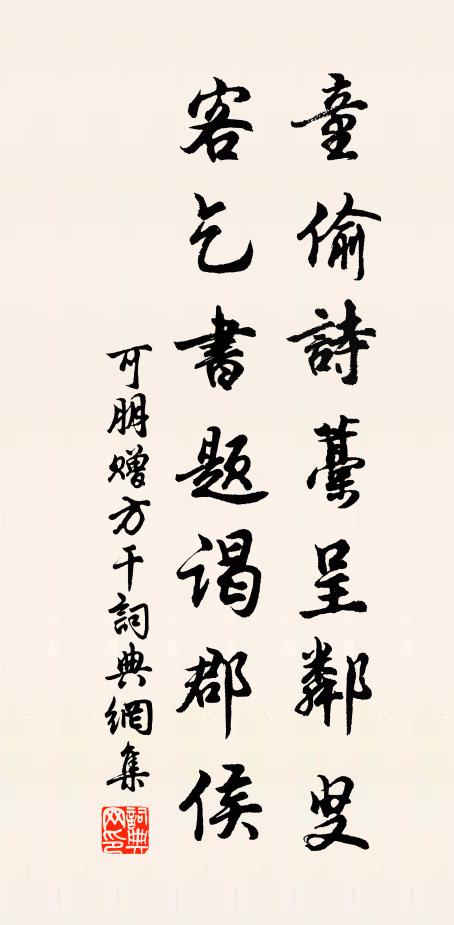 童偷詩藳呈鄰叟
客乞書題謁郡侯
可朋贈方干詞典網集
詞典網印